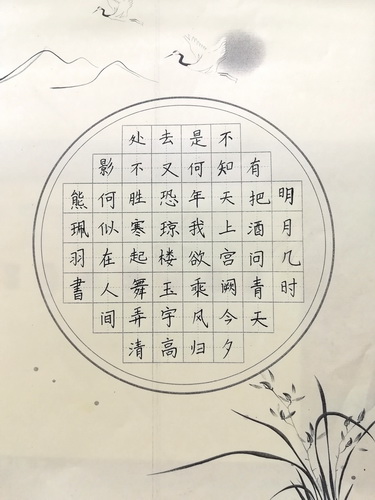 明月几时
有把酒问青天
不知天上宫阙今夕
是何年我欲乘风归
去又恐琼楼玉宇高
处不胜寒起舞弄清
影何似在人间
熊珮羽書